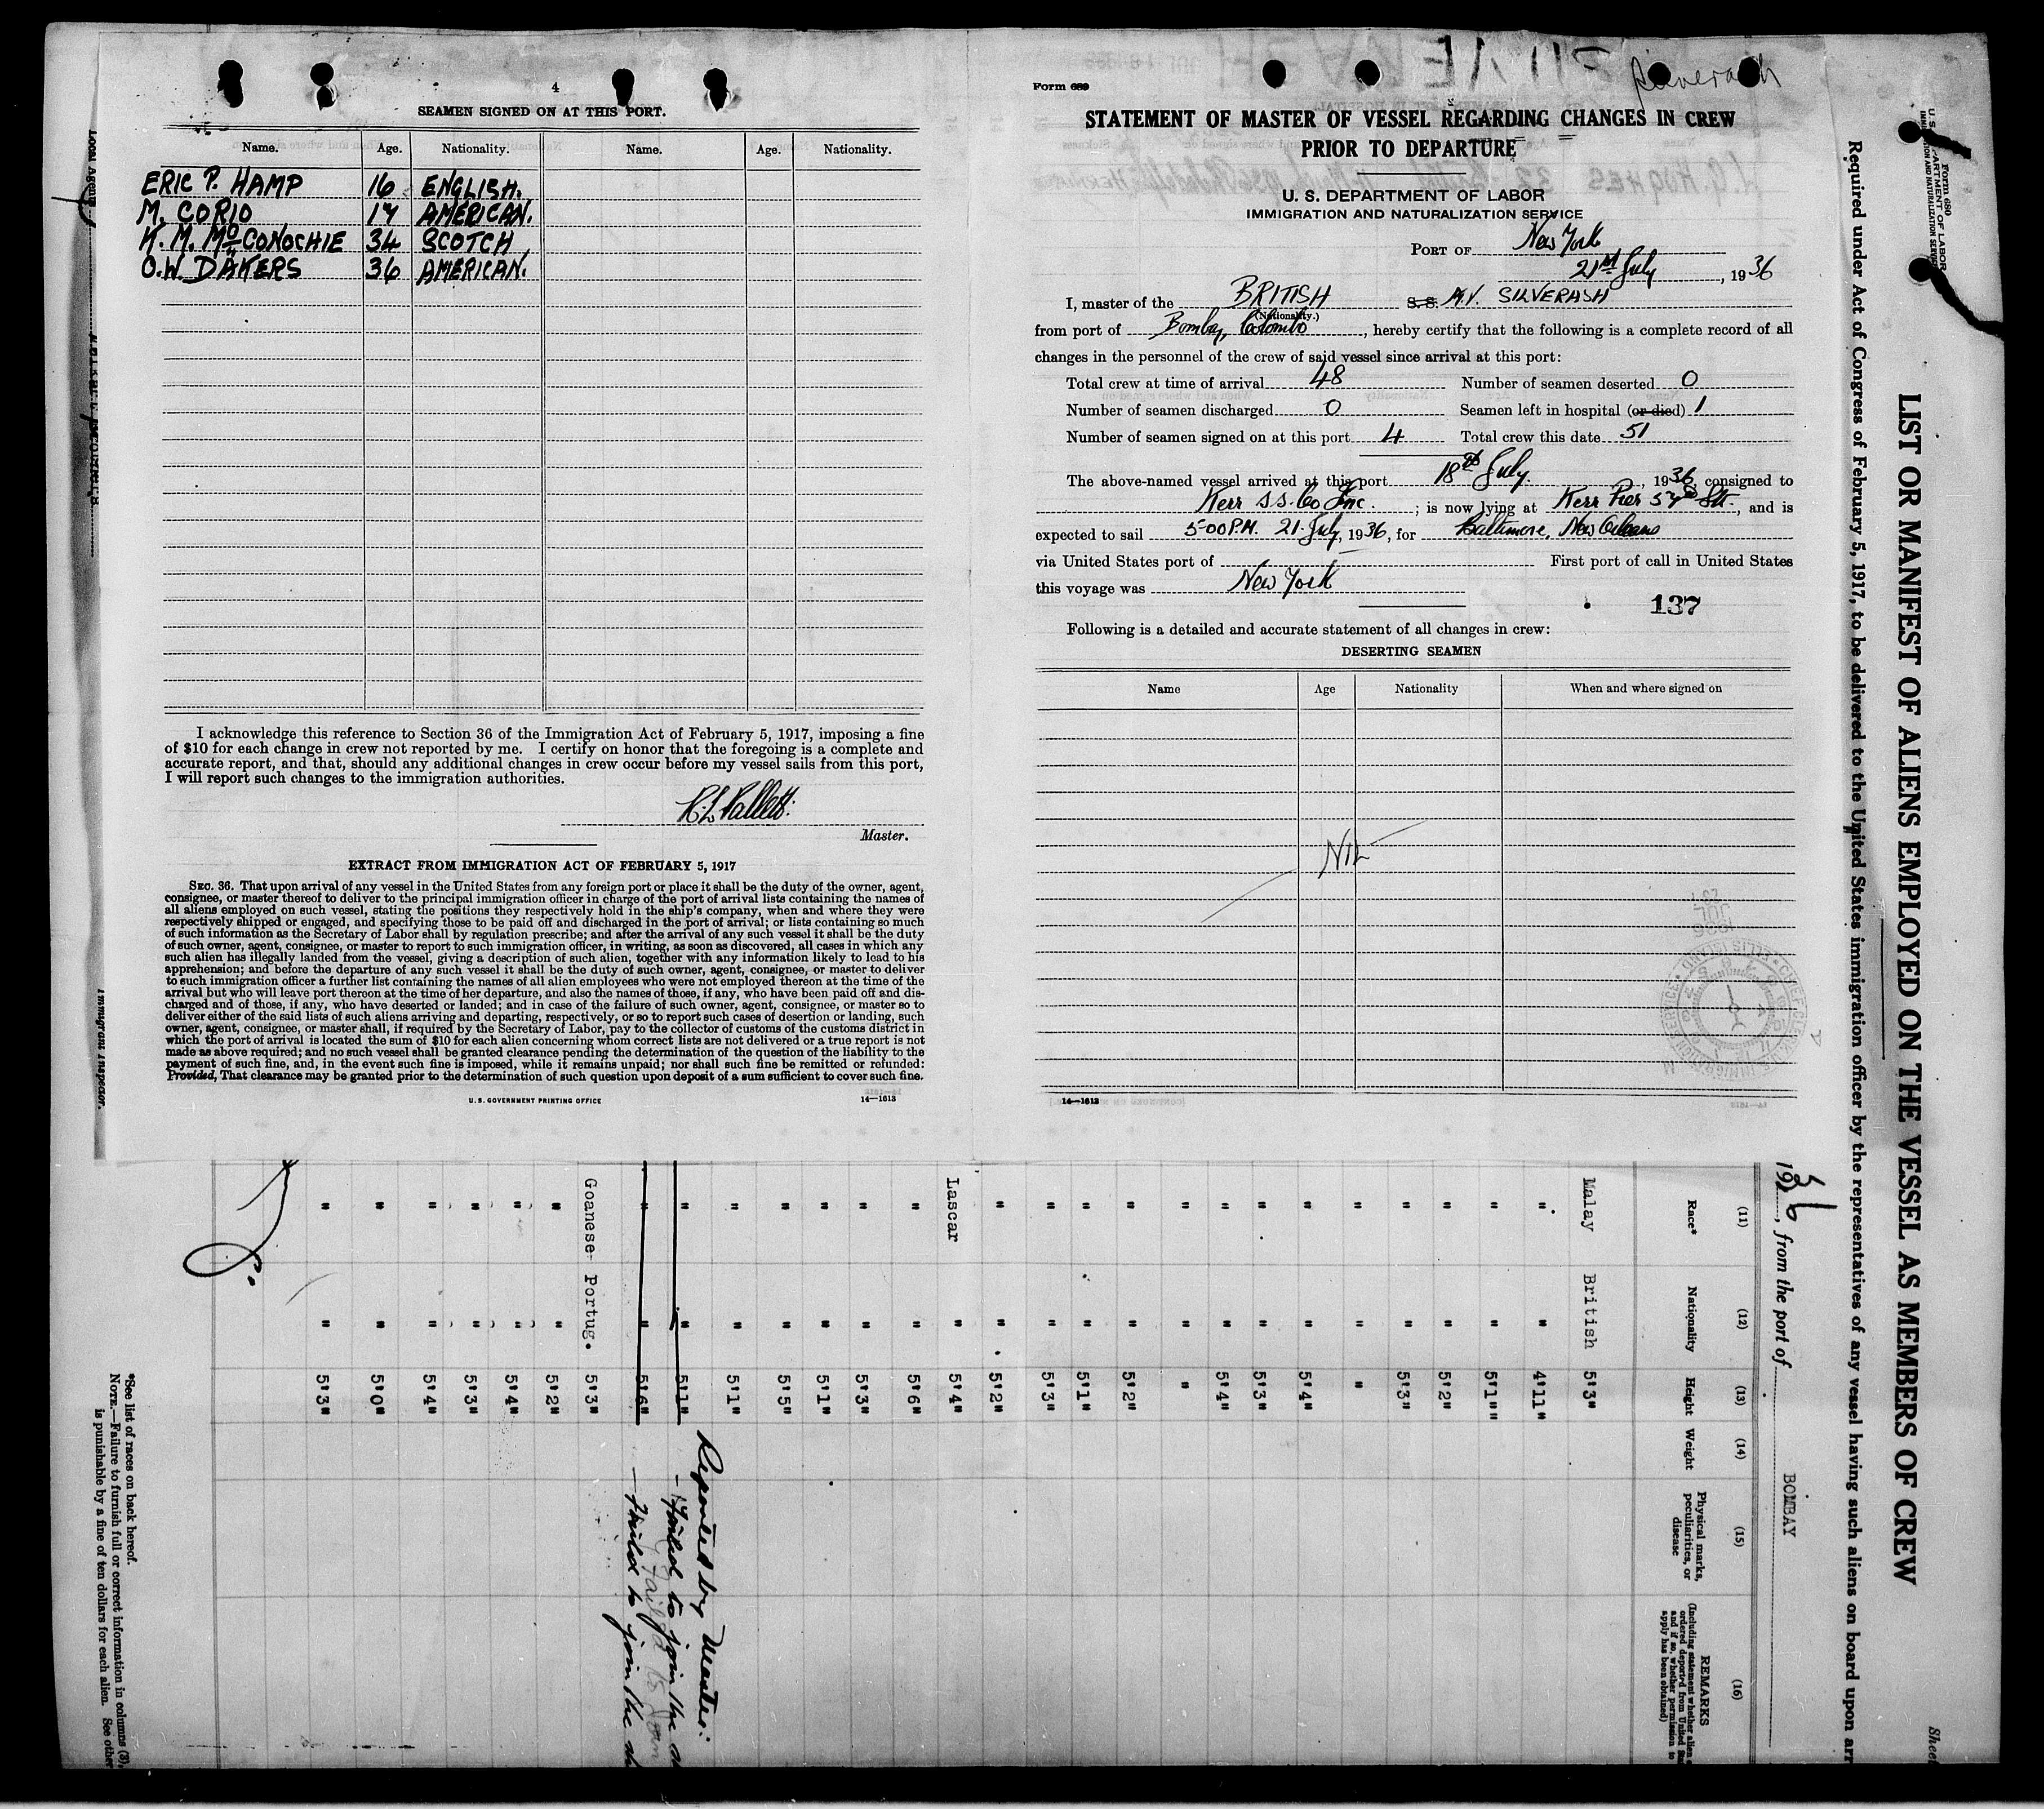 4
SEAMEN SIGNED ON AT THIS PORT.
Name. Age. Nationality. Name. Age. Nationality.
ERIC P. HAMP 16 ENGLISH.
M. CORIO 17 AMERICAN.
K. M. McCONOCHIE 34 SCOTCH
O.W. DAKERS 36 AMERICAN.
I acknowledge this reference to Section 36 of the Immigration Act of February 5, 1917, imposing a fine
of $10 for each change in crew not reported by me. I certify on honor that the foregoing is a complete and
accurate report, and that, should any additional changes in crew occur before my vessel sails from this port,
I will report such changes to the immigration authorities.
Master.
EXTRACT FROM IMMIGRATION ACT OF FEBRUARY 5, 1917
SEC. 36. That upon arrival of any vessel in the United States from any foreign port or place it shall be the duty of the owner, agent,
consignee, or master thereof to deliver to the principal immigration officer in charge of the port of arrival lists containing the names of
all aliens employed on such vessel, stating the positions they respectively hold in the ship's company, when and where they were
respectively shipped or engaged, and specifying those to be paid off and discharged in the port of arrival; or lists containing so much
of such information as the Secretary of Labor shall by regulation prescribe; and after the arrival of any such vessel it shall be the duty
of such owner, agent, consignee, or master to report to such immigration officer, in writing, as soon as discovered, all cases in which any
such alien has illegally landed from the vessel, giving a description of such alien, together with any information likely to lead to his
apprehension; and before the departure of any such vessel it shall be the duty of such owner, agent, consignee, or master to deliver
to such immigration officer a further list containing the names of all alien employees who were not employed thereon at the time of the
arrival but who will leave port thereon at the time of her departure, and also the names of those, if any, who have been paid off and dis-
charged and of those, if any, who have deserted or landed; and in case of the failure of such owner, agent, consignee, or master so to
deliver either of the said lists of such aliens arriving and departing, respectively, or so to report such cases of desertion or landing, such
owner, agent, consignee, or master shall, if required by the Secretary of Labor, pay to the collector of customs of the customs district in
which the port of arrival is located the sum of $10 for each alien concerning whom correct lists are not delivered or a true report is not
made as above required; and no such vessel shall be granted clearance pending the determination of the question of the liability to the
payment of such fine, and, in the event such fine is imposed, while it remains unpaid; nor shall such fine be remitted or refunded:
Provided, That clearance may be granted prior to the determination of such question upon deposit of a sum sufficient to cover such fine.
U. S. GOVERNMENT PRINTING OFFICE 14—1613
Silverash
Form 689
STATEMENT OF MASTER OF VESSEL REGARDING CHANGES IN CREW
PRIOR TO DEPARTURE
U. S. DEPARTMENT OF LABOR
IMMIGRATION AND NATURALIZATION SERVICE
PORT OF New York
21st July, 1936
I, master of the BRITISH S.S. M.V. SILVERASH
(Nationality.)
from port of Bombay, Colombo, hereby certify that the following is a complete record of all
changes in the personnel of the crew of said vessel since arrival at this port:
Total crew at time of arrival 48 Number of seamen deserted 0
Number of seamen discharged 0 Seamen left in hospital (or died) 1
Number of seamen signed on at this port 4 Total crew this date 51
The above-named vessel arrived at this port 18th July, 1936, consigned to
Kerr S.S. Co Inc.; is now lying at Kerr Pier 57th Str., and is
expected to sail 5-00 P.M. 21 July, 1936, for Baltimore, New Orleans
via United States port of First port of call in United States
this voyage was New York
137
Following is a detailed and accurate statement of all changes in crew:
DESERTING SEAMEN
Name Age Nationality When and where signed on
NIL
14—1613
Form 680
U. S. DEPARTMENT OF LABOR
IMMIGRATION AND NATURALIZATION SERVICE
LIST OR MANIFEST OF ALIENS EMPLOYED ON THE VESSEL AS MEMBERS OF CREW
Required under Act of Congress of February 5, 1917, to be delivered to the United States immigration officer by the representatives of any vessel having such aliens on board upon arr
Sheet
1936, from the port of BOMBAY
(11) (12) (13) (14) (15) (16)
Race* Nationality Height Weight Physical marks, peculiarities, or disease REMARKS
Malay British 5'3"
" " 4'11"
" " 5'1"
" " 5'2"
" " 5'3"
" " "
" " 5'4"
" " 5'3"
" " 5'4"
" " "
" " 5'2"
" " 5'1"
" " 5'3"
" " 5'2"
Lascar " 5'4"
" " 5'6"
" " 5'3"
" " 5'1"
" " 5'5"
" " 5'1"
Reported by Master:
" " 5'1" - Failed to join the
" " 5'6" - Failed to join the
Goanese Portug. 5'3"
" " 5'2"
" " 5'4"
" " 5'3"
" " 5'4"
" " 5'0"
" " 5'3"
*See list of races on back hereof.
NOTE.—Failure to furnish full or correct information in columns (3),
is punishable by a fine of ten dollars for each alien. See other
Local Agents
Immigrant Inspector.